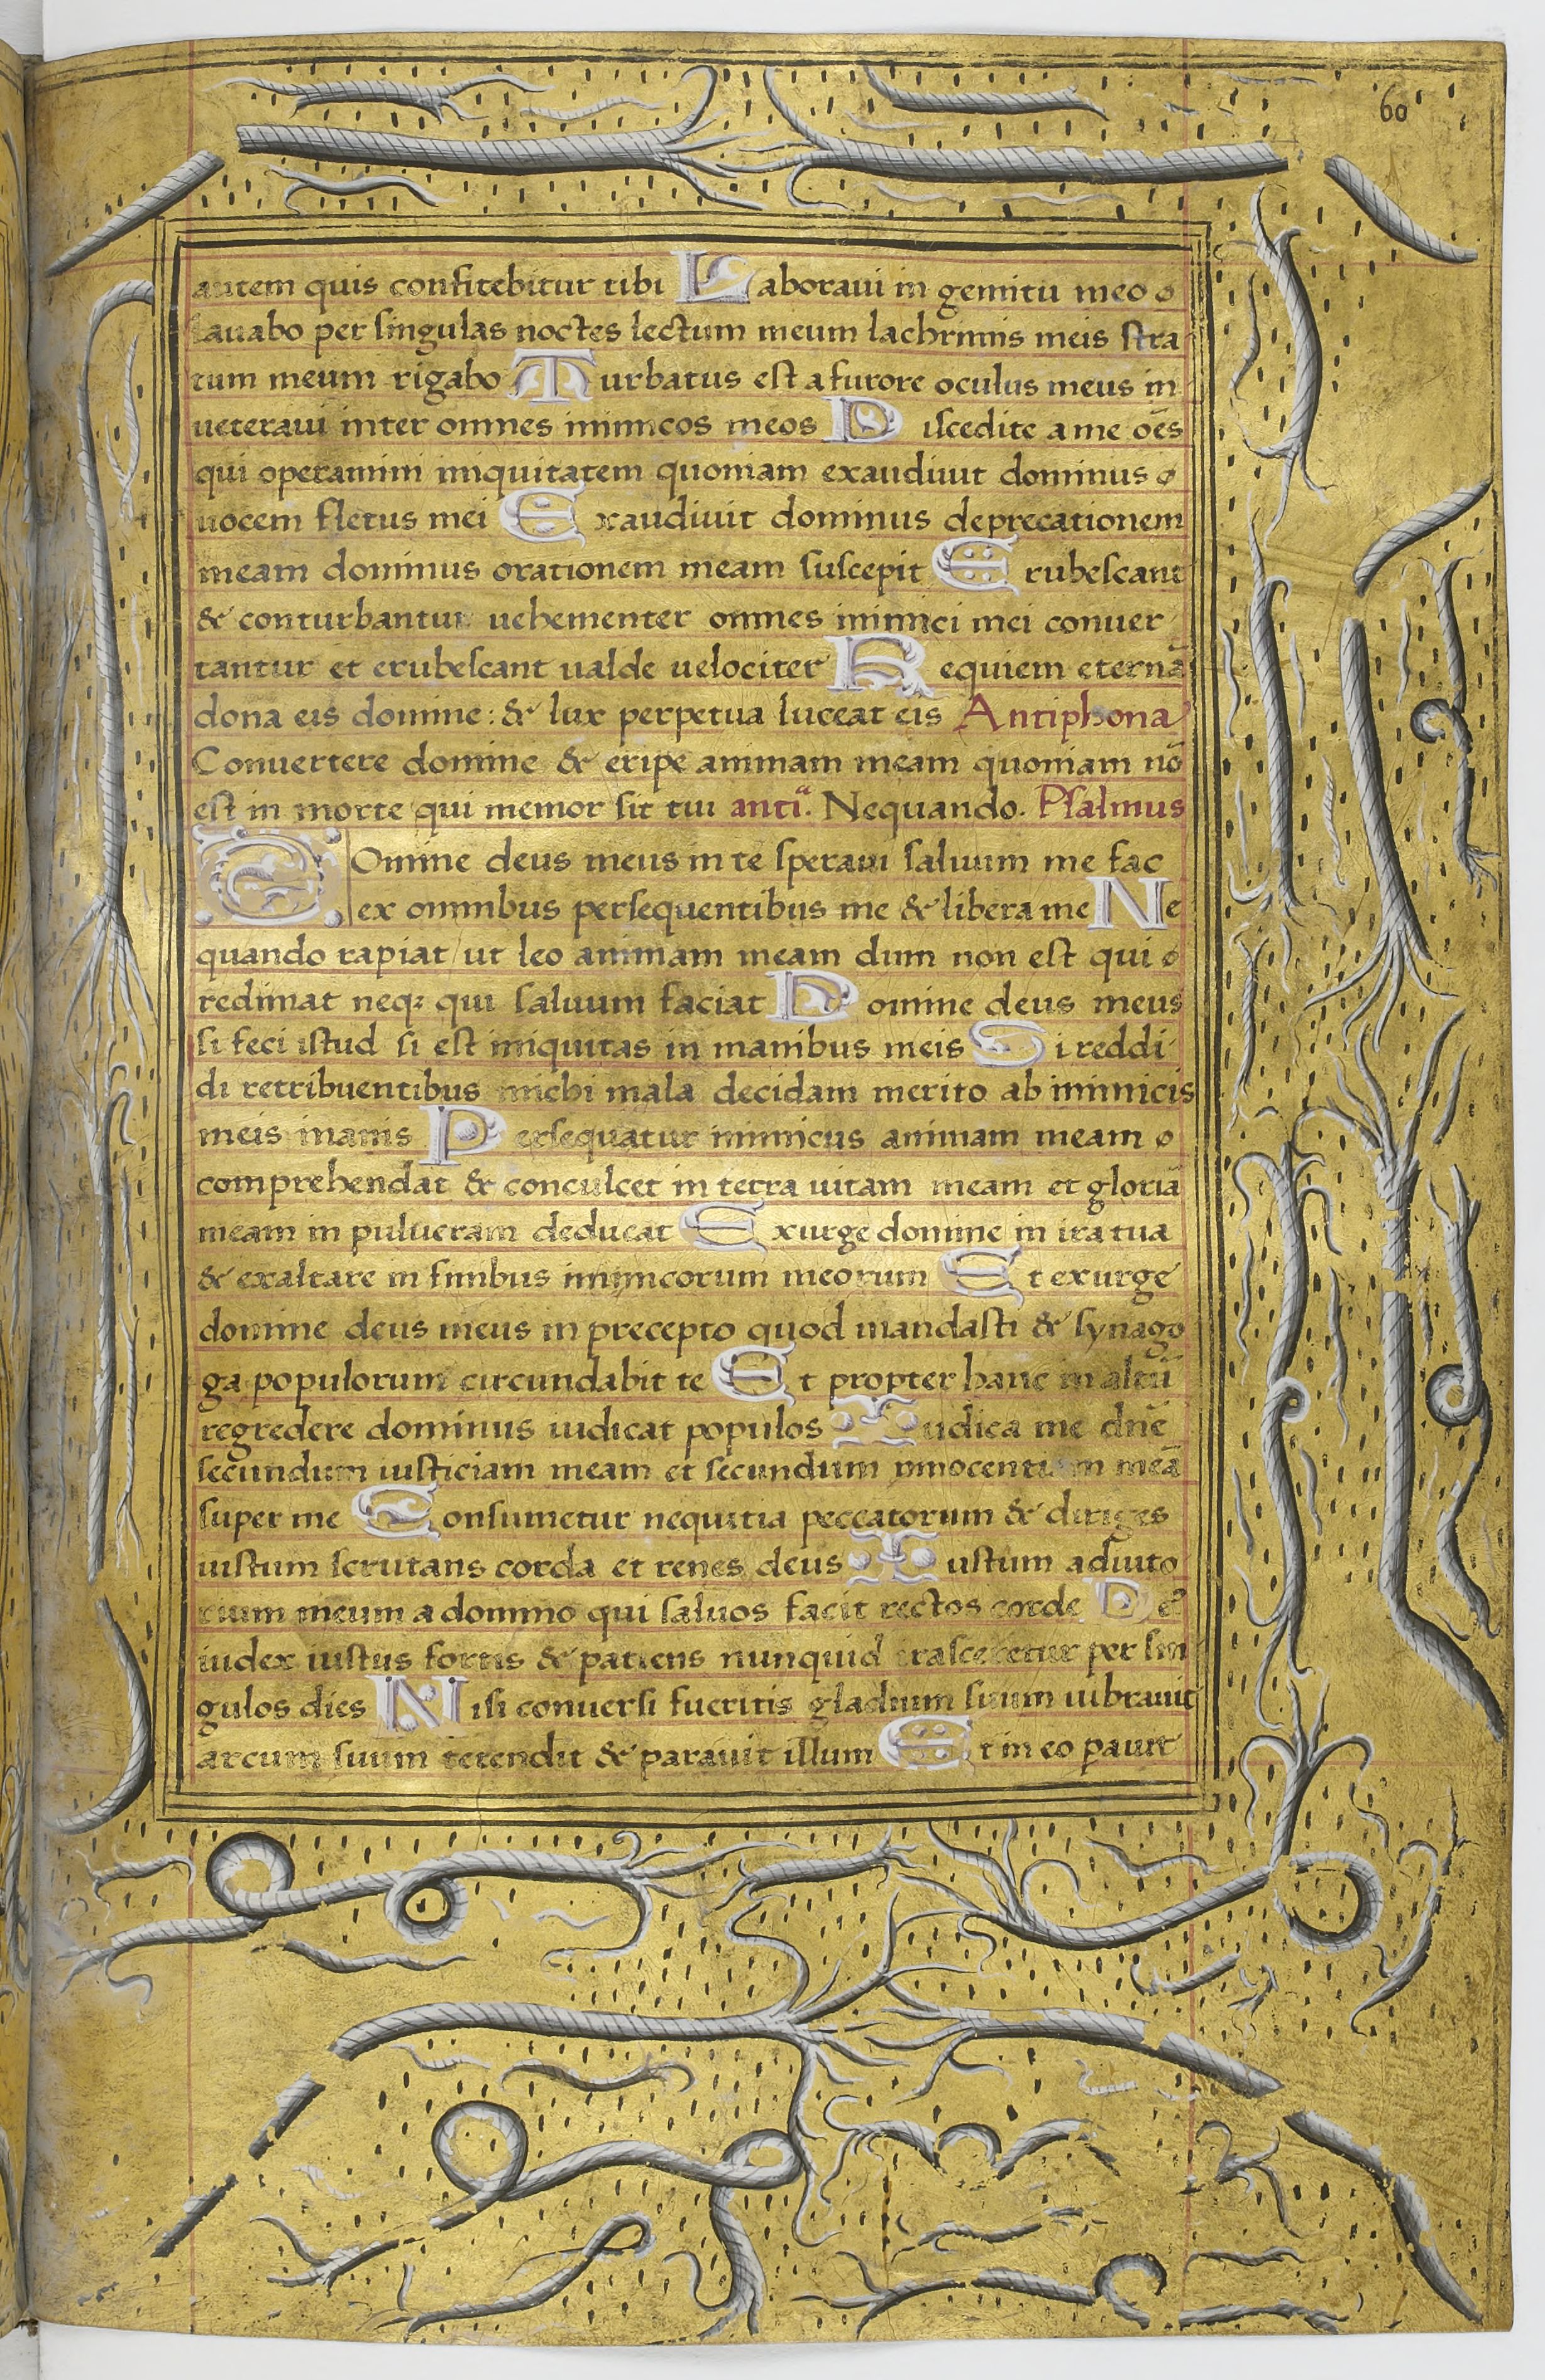 60
autem quis confitebitur tibi Laboraui in gemitu meo
lauabo per singulas noctes lectum meum lachrimis meis stra
tum meum rigabo Turbatus est a furore oculus meus in
ueteraui inter omnes inimicos meos Discedite a me oēs
qui operamini iniquitatem quoniam exaudiuit dominus
uocem fletus mei Exaudiuit dominus deprecationem
meam dominus orationem meam suscepit Erubescant
& conturbantur uehementer omnes inimici mei conuer
tantur et erubescant ualde uelociter Requiem eternā
dona eis domine: & lux perpetua luceat eis Antiphona
Conuertere domine & eripe animam meam quoniam nō
est in morte qui memor sit tui antiᵃ. Nequando. Psalmus
DOmine deus meus in te speraui saluum me fac
ex omnibus persequentibus me & libera me Ne
quando rapiat ut leo animam meam dum non est qui
redimat neqꝫ qui saluum faciat Domine deus meus
si feci istud si est iniquitas in manibus meis Si reddi
di retribuentibus michi mala decidam merito ab inimicis
meis inanis Persequatur inimicus animam meam
comprehendat & conculcet in terra uitam meam et gloriā
meam in pulueram deducat Exurge domine in ira tua
& exaltare in finibus inimicorum meorum Et exurge
domine deus meus in precepto quod mandasti & synago
ga populorum circundabit te Et propter hanc in altū
regredere dominus iudicat populos Iudica me dn̄e
secundum iusticiam meam et secundum innocentiam meā
super me Consumetur nequitia peccatorum & diriges
iustum scrutans corda et renes deus Iustum adiuto
rium meum a domino qui saluos facit rectos corde
iudex iustus fortis & patiens nunquid irascetetur per sin
gulos dies Nisi conuersi fueritis gladium suum uibrauit
arcum suum tetendit & parauit illum Et in eo pauit